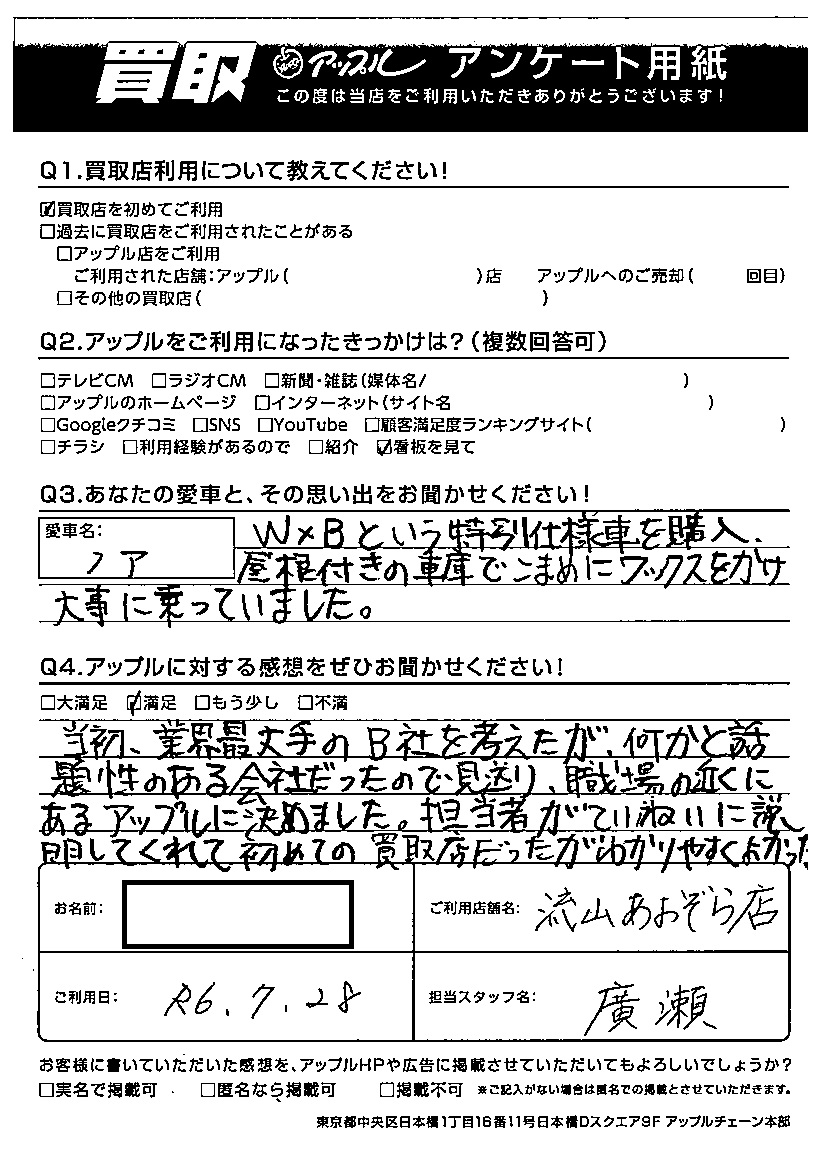 買取 アップル アンケート用紙
この度は当店をご利用いただきありがとうございます!
Q1.買取店利用について教えてください!
☑買取店を初めてご利用
□過去に買取店をご利用されたことがある
□アップル店をご利用
ご利用された店舗:アップル( )店 アップルへのご売却( 回目)
□その他の買取店( )
Q2.アップルをご利用になったきっかけは?(複数回答可)
□テレビCM □ラジオCM □新聞・雑誌(媒体名/ )
□アップルのホームページ □インターネット(サイト名 )
□Googleクチコミ □SNS □YouTube □顧客満足度ランキングサイト( )
□チラシ □利用経験があるので □紹介 ☑看板を見て
Q3.あなたの愛車と、その思い出をお聞かせください!
愛車名:
ノア
W×Bという特別仕様車を購入、
屋根付きの車庫でこまめにワックスをかけ
大事に乗っていました。
Q4.アップルに対する感想をぜひお聞かせください!
□大満足 ☑満足 □もう少し □不満
当初、業界最大手のB社を考えたが、何かと話
題性のある会社だったので見送り、職場の近くに
あるアップルに決めました。担当者がていねいに説
明してくれて初めての買取店だったがわかりやすくよかった
お名前:
ご利用店舗名: 流山あおぞら店
ご利用日: R6.7.28
担当スタッフ名: 廣瀬
お客様に書いていただいた感想を、アップルHPや広告に掲載させていただいてもよろしいでしょうか?
□実名で掲載可 □匿名なら掲載可 □掲載不可 ※ご記入がない場合は匿名での掲載とさせていただきます。
東京都中央区日本橋1丁目16番11号日本橋Dスクエア9F アップルチェーン本部